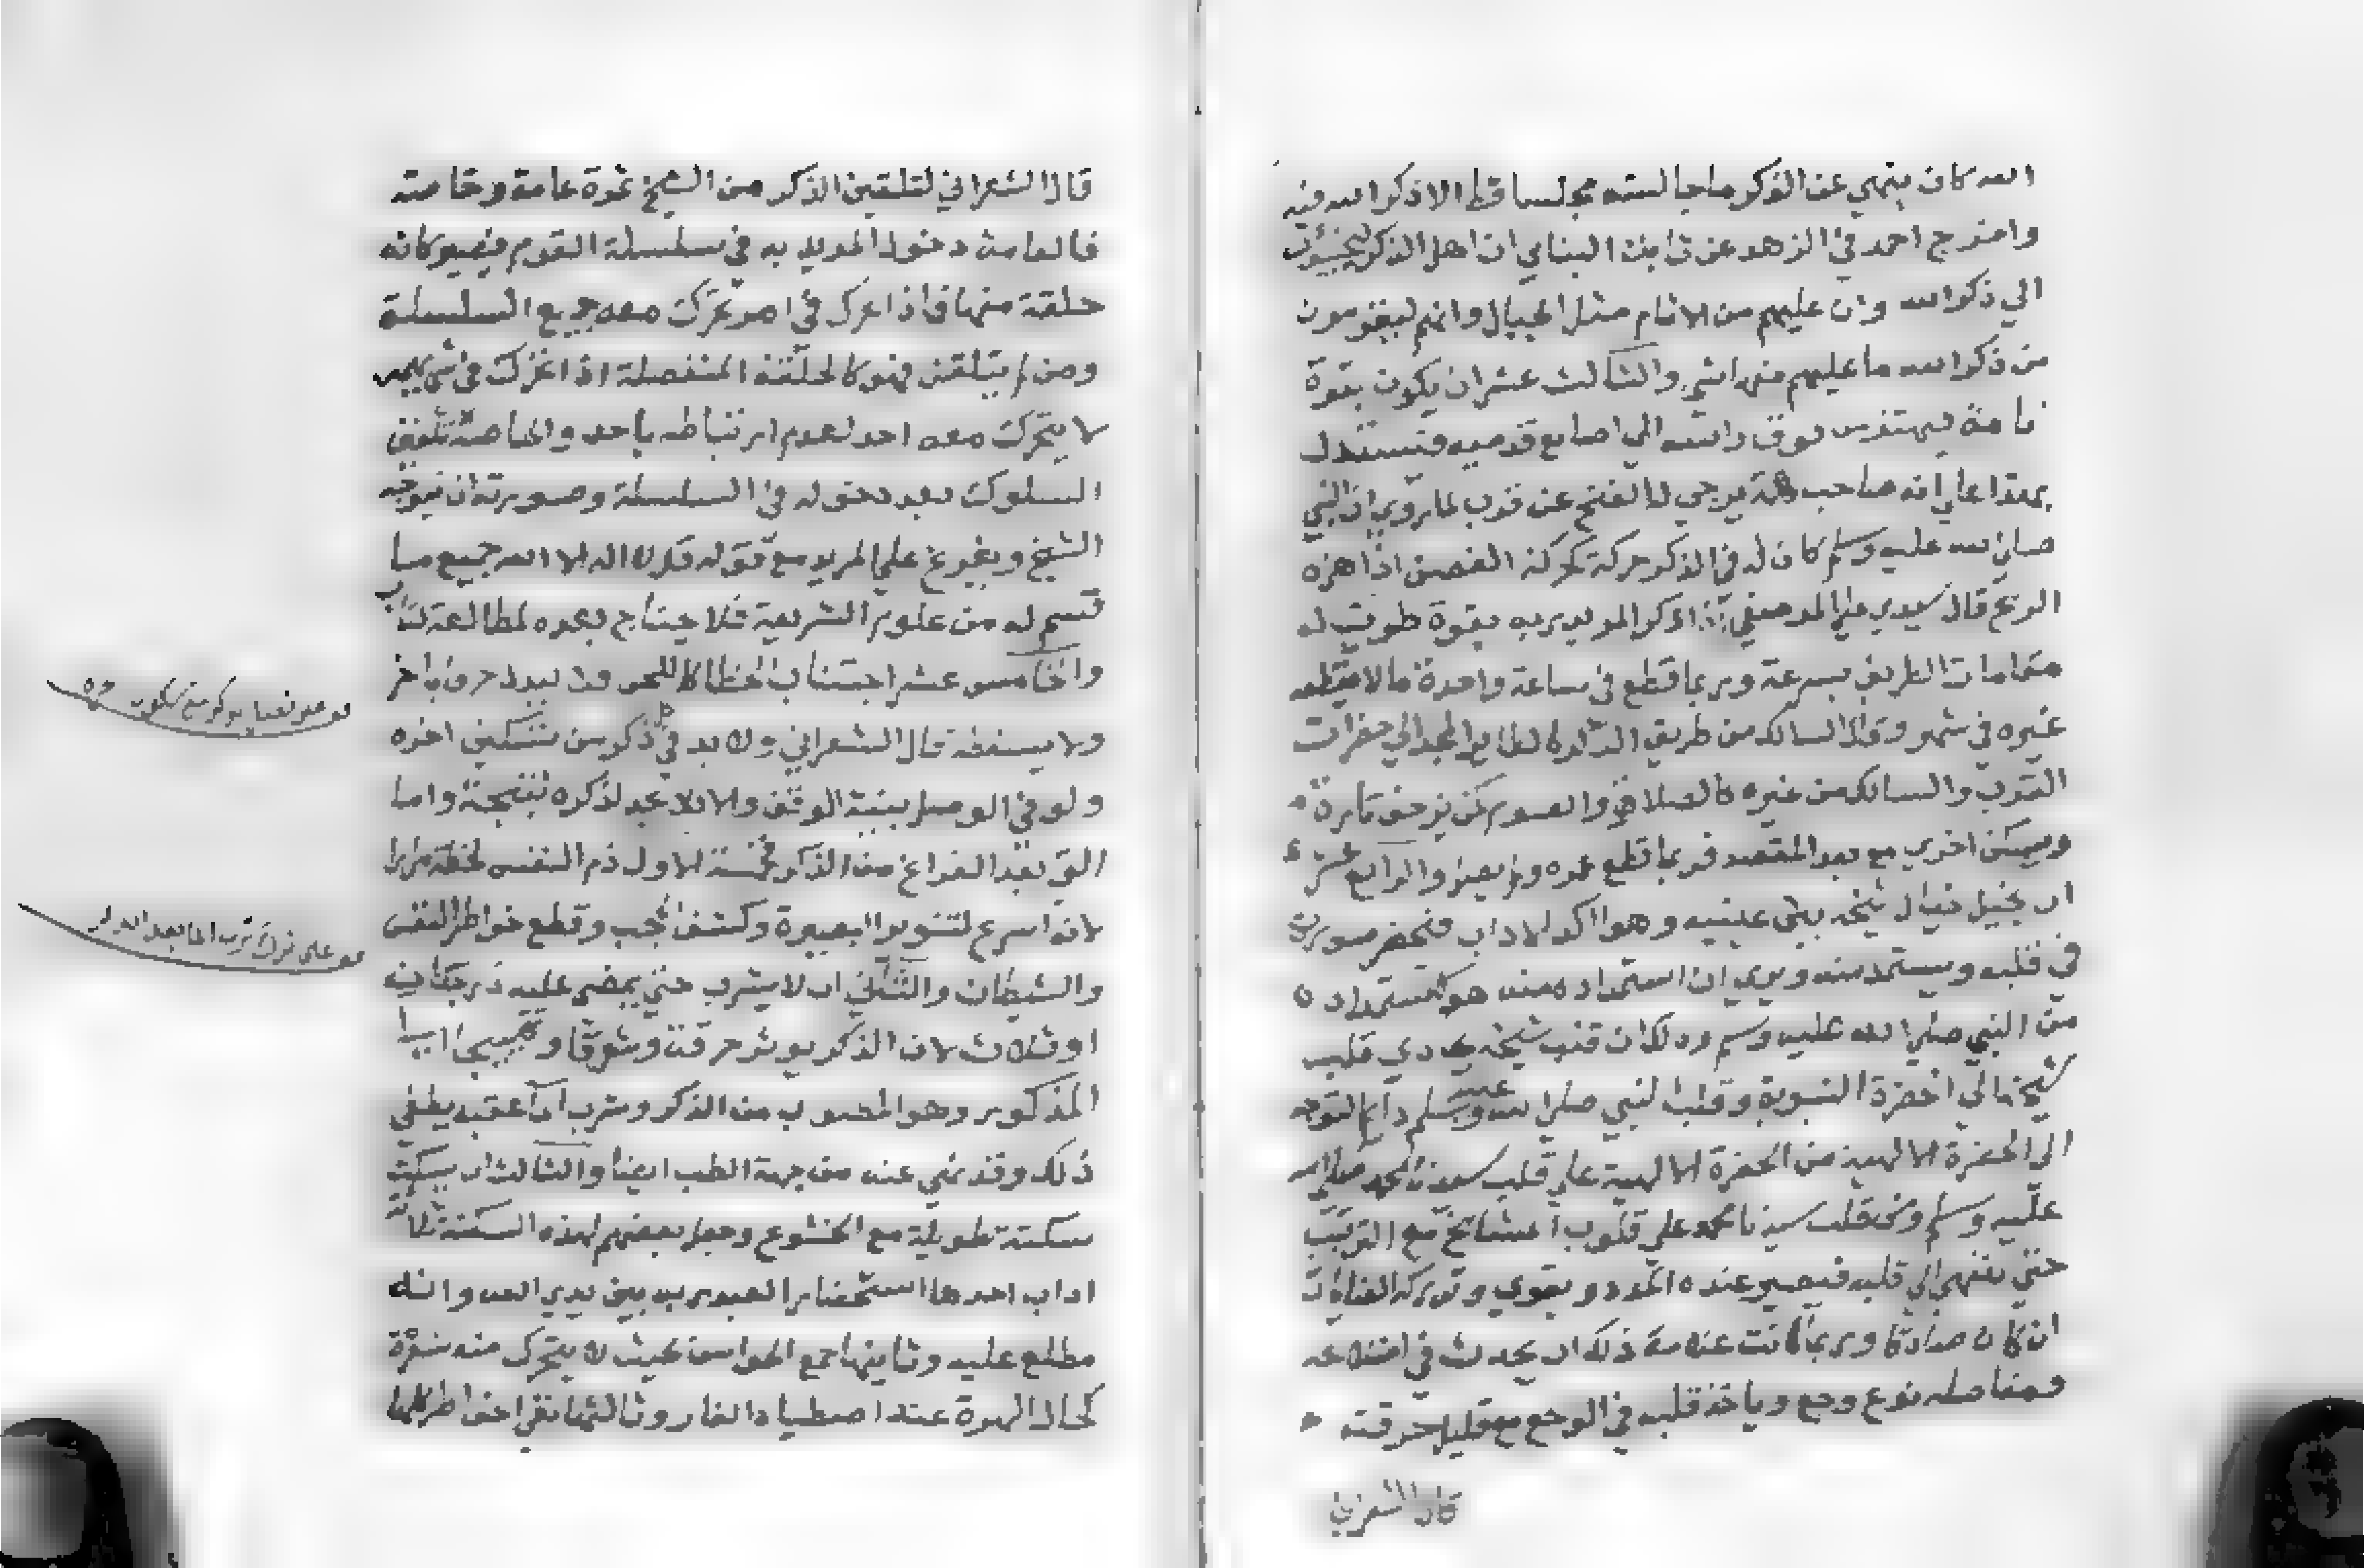 الله كان ينهي عن الذكر ما جالسته مجلسا قط الا ذكر الله فيه
واخرج احمد في الزهد عن ثابت البناني ان اهل الذكر ليجلسون
الي ذكر الله وان عليهم من الاثام مثل الجبال وانهم ليقومون
من ذكر الله ما عليهم منها شي والثالث عشر ان يكون بقوة
تامة يهتز من فوق راسه الي اصابع قدميه فيستدل
بهذا علي انه صاحب همة يرجي له الفتح عن قرب لما روي ان النبي
صلي الله عليه وسلم كان له في الذكر حركة كحركة الغصن اذا هزه
الريح قال سيدي علي المرصفي اذا ذكر المريد ربه بقوة طويت له
مقامات الطريق بسرعة وربما قطع في ساعة واحدة ما لا يقطعه
غيره في شهر وقال السالك من طريق الذكر كالطاير المجد الي حضرات
القرب والسالك من غيره كالصلاة والصوم كمن يزحف تارة
ويسكن اخري مع بعد المقصد فربما قطع عمره ولم يصل والرابع عشر
ان يخيل خيال شيخه بين عينيه وهو اكد الاداب فيحضر صورته
في قلبه ويستمد منه ويري ان استمداده منه هو استمداده
من النبي صلي الله عليه وسلم وذلك ان قلب شيخه يحاذي قلب
شيخه الي الحضرة النبوية وقلب النبي صلي الله عليه وسلم دايم التوجه
الي الحضرة الالهية من الحضرة الالهية علي قلب سيدنا محمد صلي الله
عليه وسلم ومن قلب سيدنا محمد علي قلوب المشايخ مع الترتيب
حتي ينتهي الي قلبه فيصير عنده المدد ويقوي وتدركه العنايات
ان كان صادقا وربما كانت علامة ذلك ان يحدث في اضلاعه
ومفاصله نوع وجع وياخذ قلبه في الوجع مع قليل حرقته
قال الشعراني
قال الشعراني لتلقين الذكر من الشيخ ثمرة عامة وخاصة
فالعامة دخول المريد به في سلسلة القوم فيصير كانه
حلقة منها فاذا تحرك في امر تحرك معه جميع السلسلة
ومن لم يتلقن فهو كالحلقة المنفصلة اذا تحرك في شي يهمه
لا يتحرك معه احد لعدم ارتباطه باحد والخاصة تلقين
السلوك بعد دخوله في السلسلة وصورته ان يتوجه
الشيخ ويفرغ علي المريد مع قوله قل لا اله الا الله جميع ما
قسم له من علوم الشريعة فلا يحتاج بعده لمطالعة كتاب
والخامس عشر اجتناب الخطا كاللحن فلا يبدل حرفا باخر
ولا يسقطه قال الشعراني ولا بد في كل ذكر من تسكين اخره
ولو في الوصل بنية الوقف والا فلا يجد لذكره نتيجة واما
التي بعد الفراغ من الذكر فخمسة الاول ذم النفس لحظة مرارا
لانه اسرع لتنوير البصيرة وكشف الحجب وقطع خواطر النفس
والشيطان والثاني ان لا يشرب حتي يمضي عليه درجتان
او ثلاث لان الذكر يورث حرقة وشوقا وتهييجا الي
المذكور وهو المطلوب من الذكر وشرب الماء عقبه يطفي
ذلك وقد نهي عنه من جهة الطب ايضا والثالث ان يسكت
سكتة طويلة مع الخشوع وجعل بعضهم لهذه السكتة ثلاثة
اداب احدها استحضار العبد ربه بين يدي الله وانه
مطلع عليه وثانيها جمع الحواس بحيث لا يتحرك منه شعرة
كحال الهرة عند اصطياد الفار وثالثها نفي الخواطر كلها